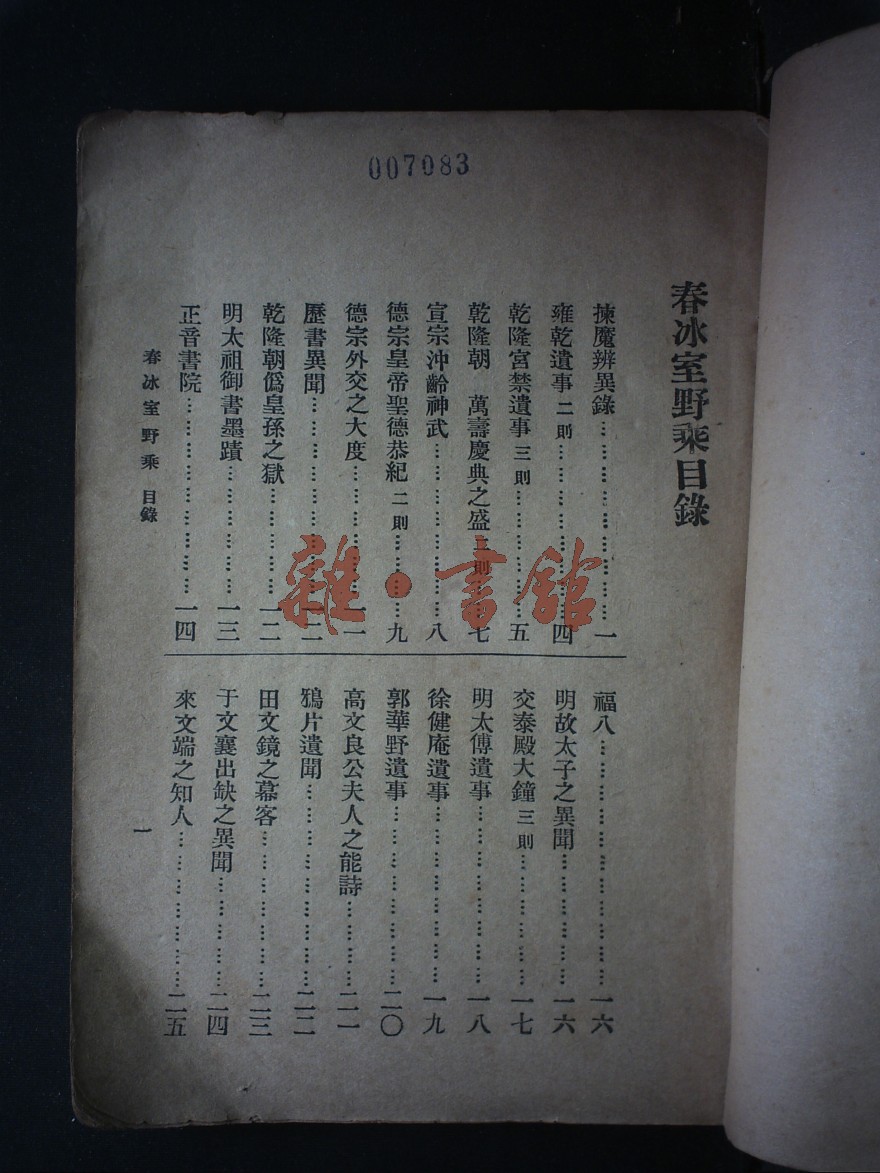 007083
春冰室野乘目錄
揀魔辨異錄…………………一
雍乾遺事 二則…………………四
乾隆宮禁遺事 三則…………………五
乾隆朝 萬壽慶典之盛 則……七
宣宗沖齡神武…………………八
德宗皇帝聖德恭紀 二則…………九
德宗外交之大度…………………一一
歷書異聞…………………一二
乾隆朝僞皇孫之獄…………………一二
明太祖御書墨蹟…………………一三
正音書院…………………一四
福八…………………一六
明故太子之異聞…………………一六
交泰殿大鐘 三則…………………一七
明太傅遺事…………………一八
徐健庵遺事…………………一九
郭華野遺事…………………二〇
高文良公夫人之能詩…………二一
鴉片遺聞…………………二二
田文鏡之幕客…………………二三
于文襄出缺之異聞…………………二四
來文端之知人…………………二五
春冰室野乘 目錄
一
雜·書館